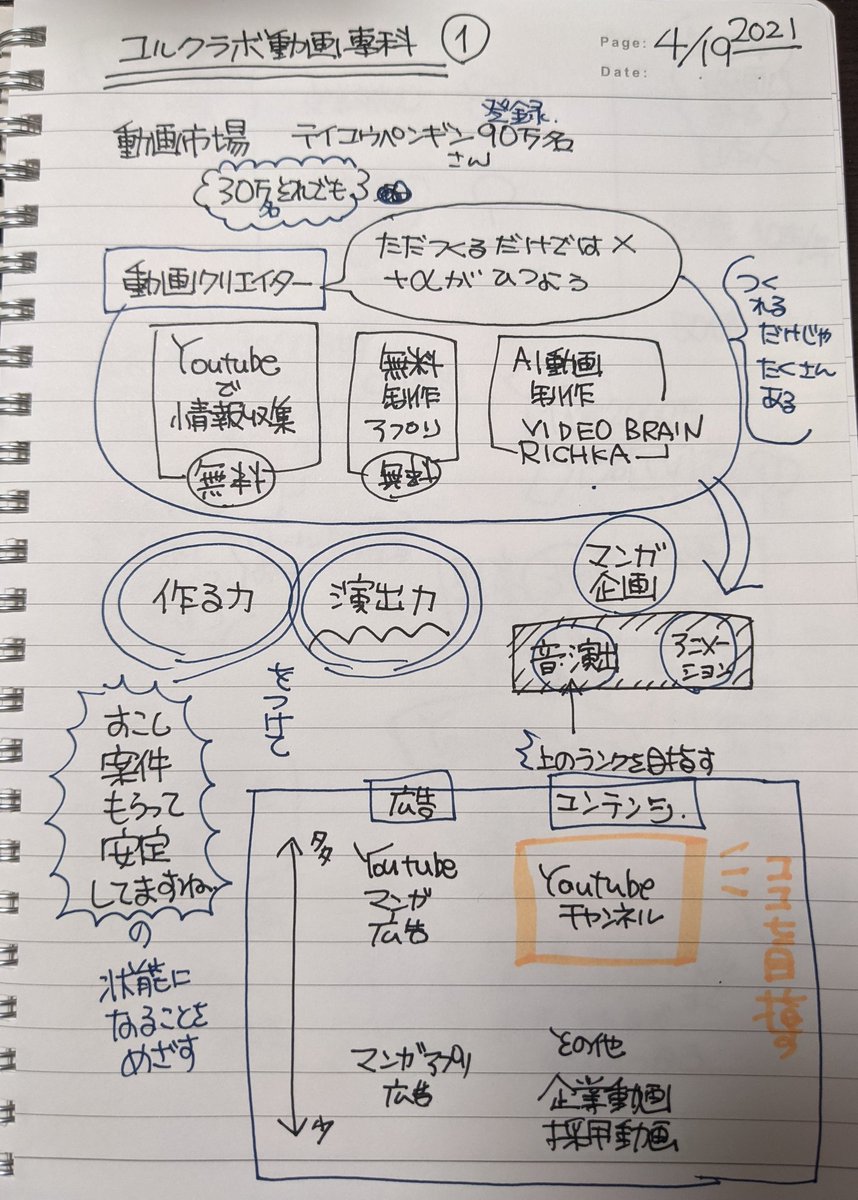 コルクラボ動画専科 ①
Page: 4/19 2021
Date:
動画市場 テイコウペンギンさん 登録 90万名
30万名それでも
動画クリエイター
ただつくるだけでは×
+αがひつよう
つく
れる
だけじゃ
たくさん
ある
Youtube
で
情報収集
無料
無料
制作
アプリ
無料
AI動画
制作
VIDEO BRAIN
RICHKA
作る力
演出力
をつけて
マンガ
企画
音・演出
アニメー
ション
上のランクを目指す
すこし
案件
もらって
安定
してますね
の
状態に
なることを
めざす
広告
コンテンツ
多
少
Youtube
マンガ
広告
マンガアプリ
広告
Youtube
チャンネル
ココを目指す
その他
企業動画
採用動画